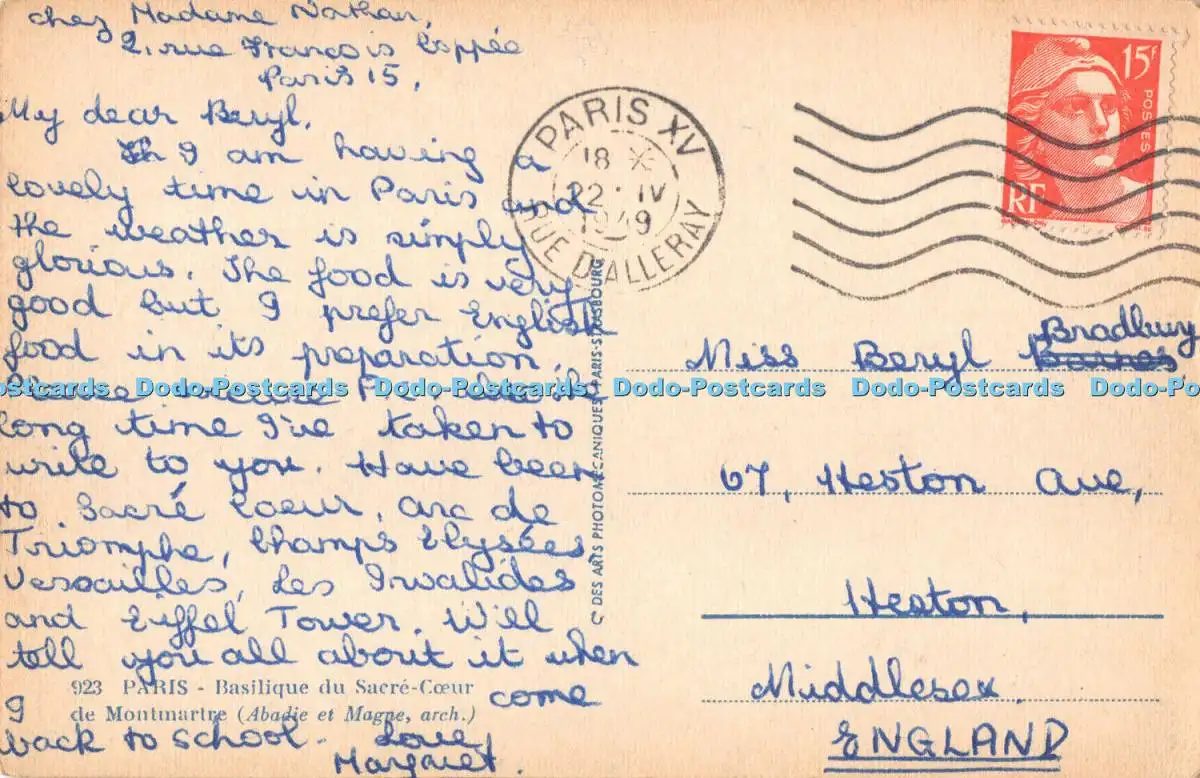 chez Madame Nathan,
2, rue François Coppée
Paris 15.
My dear Beryl,
I am having a
lovely time in Paris and
the weather is simply
glorious. The food is very
good but I prefer English
food in its preparation.
Please excuse the
long time I've taken to
write to you. Have been
to Sacré Coeur, Arc de
Triomphe, Champs Elysées,
Versailles, Les Invalides
and Eiffel Tower. Will
tell you all about it when
I come
back to school. Love
Margaret.
923 PARIS - Basilique du Sacré-Cœur
de Montmartre (Abadie et Magne, arch.)
PARIS XV
18
22 IV
1949
RUE D'ALLERAY
15F
POSTES
RF
Cie DES ARTS PHOTOMÉCANIQUES PARIS-STRASBOURG
Bradbury
Miss Beryl Barnes
67, Heston Ave,
Heston,
Middlesex
ENGLAND
Dodo-Postcards Dodo-Postcards Dodo-Postcards Dodo-Postcards Dodo-Postcards